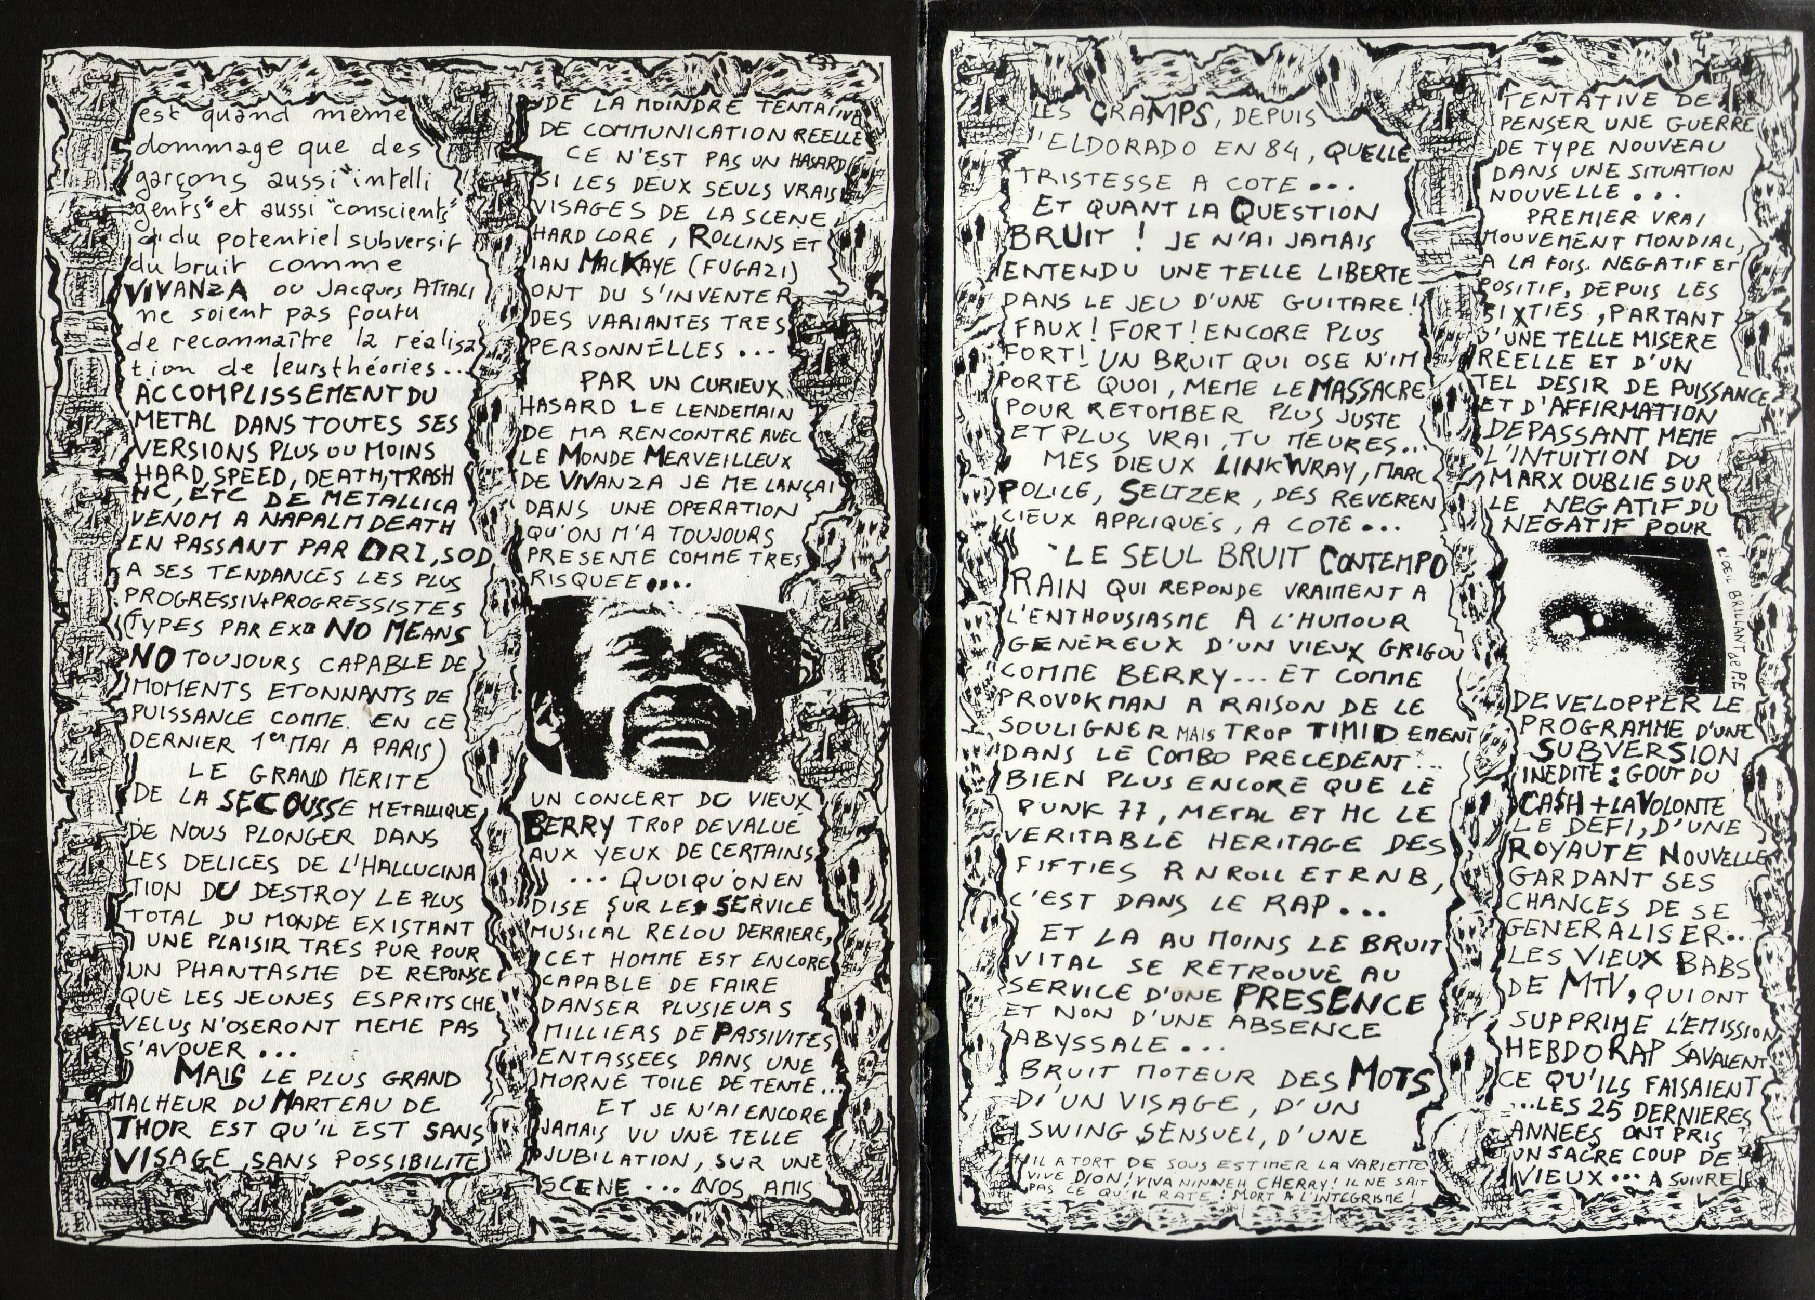 est quand même
dommage que des
garçons aussi "intelli
gents" et aussi "conscients"
du potentiel subversif
du bruit comme
VIVANZA OU JACQUES ATTALI
ne soient pas foutu
de reconnaître la réalisa
tion de leurs théories...
ACCOMPLISSEMENT DU
METAL DANS TOUTES SES
VERSIONS PLUS OU MOINS
HARD, SPEED, DEATH, TRASH
HC, ETC DE METALLICA
VENOM A NAPALM DEATH
EN PASSANT PAR DRI, SOD
A SES TENDANCES LES PLUS
PROGRESSIV+PROGRESSISTES
(TYPES PAR EX: NO MEANS
NO TOUJOURS CAPABLE DE
MOMENTS ETONNANTS DE
PUISSANCE COMME EN CE
DERNIER 1er MAI A PARIS)
LE GRAND MERITE
DE LA SECOUSSE METALLIQUE,
DE NOUS PLONGER DANS
LES DELICES DE L'HALLUCINA
TION DU DESTROY LE PLUS
TOTAL DU MONDE EXISTANT
UNE PLAISIR TRES PUR POUR
UN PHANTASME DE REPONSE
QUE LES JEUNES ESPRITS CHE
VELUS N'OSERONT MEME PAS
S'AVOUER...
MAIS LE PLUS GRAND
MALHEUR DU MARTEAU DE
THOR EST QU'IL EST SANS
VISAGE, SANS POSSIBILITE
DE LA MOINDRE TENTATIVE
DE COMMUNICATION REELLE
CE N'EST PAS UN HASARD
SI LES DEUX SEULS VRAIS
VISAGES DE LA SCENE
HARD CORE, ROLLINS ET
IAN MACKAYE (FUGAZI)
ONT DU S'INVENTER
DES VARIANTES TRES
PERSONNELLES...
PAR UN CURIEUX
HASARD LE LENDEMAIN
DE MA RENCONTRE AVEC
LE MONDE MERVEILLEUX
DE VIVANZA JE ME LANÇAI
DANS UNE OPERATION
QU'ON M'A TOUJOURS
PRESENTE COMME TRES
RISQUEE....
UN CONCERT DU VIEUX
BERRY TROP DEVALUE
AUX YEUX DE CERTAINS
... QUOIQU'ON EN
DISE SUR LE SERVICE
MUSICAL RELOU DERRIERE,
CET HOMME EST ENCORE
CAPABLE DE FAIRE
DANSER PLUSIEURS
MILLIERS DE PASSIVITES
ENTASSEES DANS UNE
MORNE TOILE DETENTE...
ET JE N'AI ENCORE
JAMAIS VU UNE TELLE
JUBILATION, SUR UNE
SCENE... NOS AMIS
LES CRAMPS, DEPUIS
L'ELDORADO EN 84, QUELLE
TRISTESSE A COTE...
ET QUANT LA QUESTION
BRUIT! JE N'AI JAMAIS
ENTENDU UNE TELLE LIBERTE
DANS LE JEU D'UNE GUITARE!
FAUX! FORT! ENCORE PLUS
FORT! UN BRUIT QUI OSE N'IM
PORTE QUOI, MEME LE MASSACRE
POUR RETOMBER PLUS JUSTE
ET PLUS VRAI, TU MEURES...
MES DIEUX LINK WRAY, MARC
POLICE, SELTZER, DES REVEREN
CIEUX APPLIQUÉS, A COTE...
LE SEUL BRUIT CONTEMPO
RAIN QUI REPONDE VRAIMENT A
L'ENTHOUSIASME A L'HUMOUR
GENEREUX D'UN VIEUX GRIGOU
COMME BERRY... ET COMME
PROVOKMAN A RAISON DE LE
SOULIGNER MAIS TROP TIMIDEMENT
DANS LE COMBO PRECEDENT...
BIEN PLUS ENCORE QUE LE
PUNK 77, METAL ET HC LE
VERITABLE HERITAGE DES
FIFTIES RNROLL ET RNB,
C'EST DANS LE RAP...
ET LA AU MOINS LE BRUIT
VITAL SE RETROUVE AU
SERVICE D'UNE PRESENCE
ET NON D'UNE ABSENCE
ABYSSALE...
BRUIT MOTEUR DES MOTS
D'UN VISAGE, D'UN
SWING SENSUEL, D'UNE
IL A TORT DE SOUS ESTIMER LA VARIETTE
VIVE DION! VIVA NINNEH CHERRY! IL NE SAIT
PAS CE QU'IL RATE! MORT A L'INTEGRISME!
TENTATIVE DE
PENSER UNE GUERRE
DE TYPE NOUVEAU
DANS UNE SITUATION
NOUVELLE...
PREMIER VRAI
MOUVEMENT MONDIAL,
A LA FOIS NEGATIF ET
POSITIF, DEPUIS LES
SIXTIES, PARTANT
D'UNE TELLE MISERE
REELLE ET D'UN
TEL DESIR DE PUISSANCE
ET D'AFFIRMATION
DEPASSANT MEME
L'INTUITION DU
MARX OUBLIE SUR
LE NEGATIF DU
NEGATIF POUR
L'OEIL BRILLANT DE PE
DEVELOPPER LE
PROGRAMME D'UNE
SUBVERSION
INEDITE: GOUT DU
CA$H + LA VOLONTE
LE DEFI, D'UNE
ROYAUTE NOUVELLE
GARDANT SES
CHANCES DE SE
GENERALISER..
LES VIEUX BABS
DE MTV, QUI ONT
SUPPRIME L'EMISSION
HEBDO RAP SAVAIENT
CE QU'ILS FAISAIENT
...LES 25 DERNIERES
ANNEES ONT PRIS
UN SACRE COUP DE
VIEUX... A SUIVRE